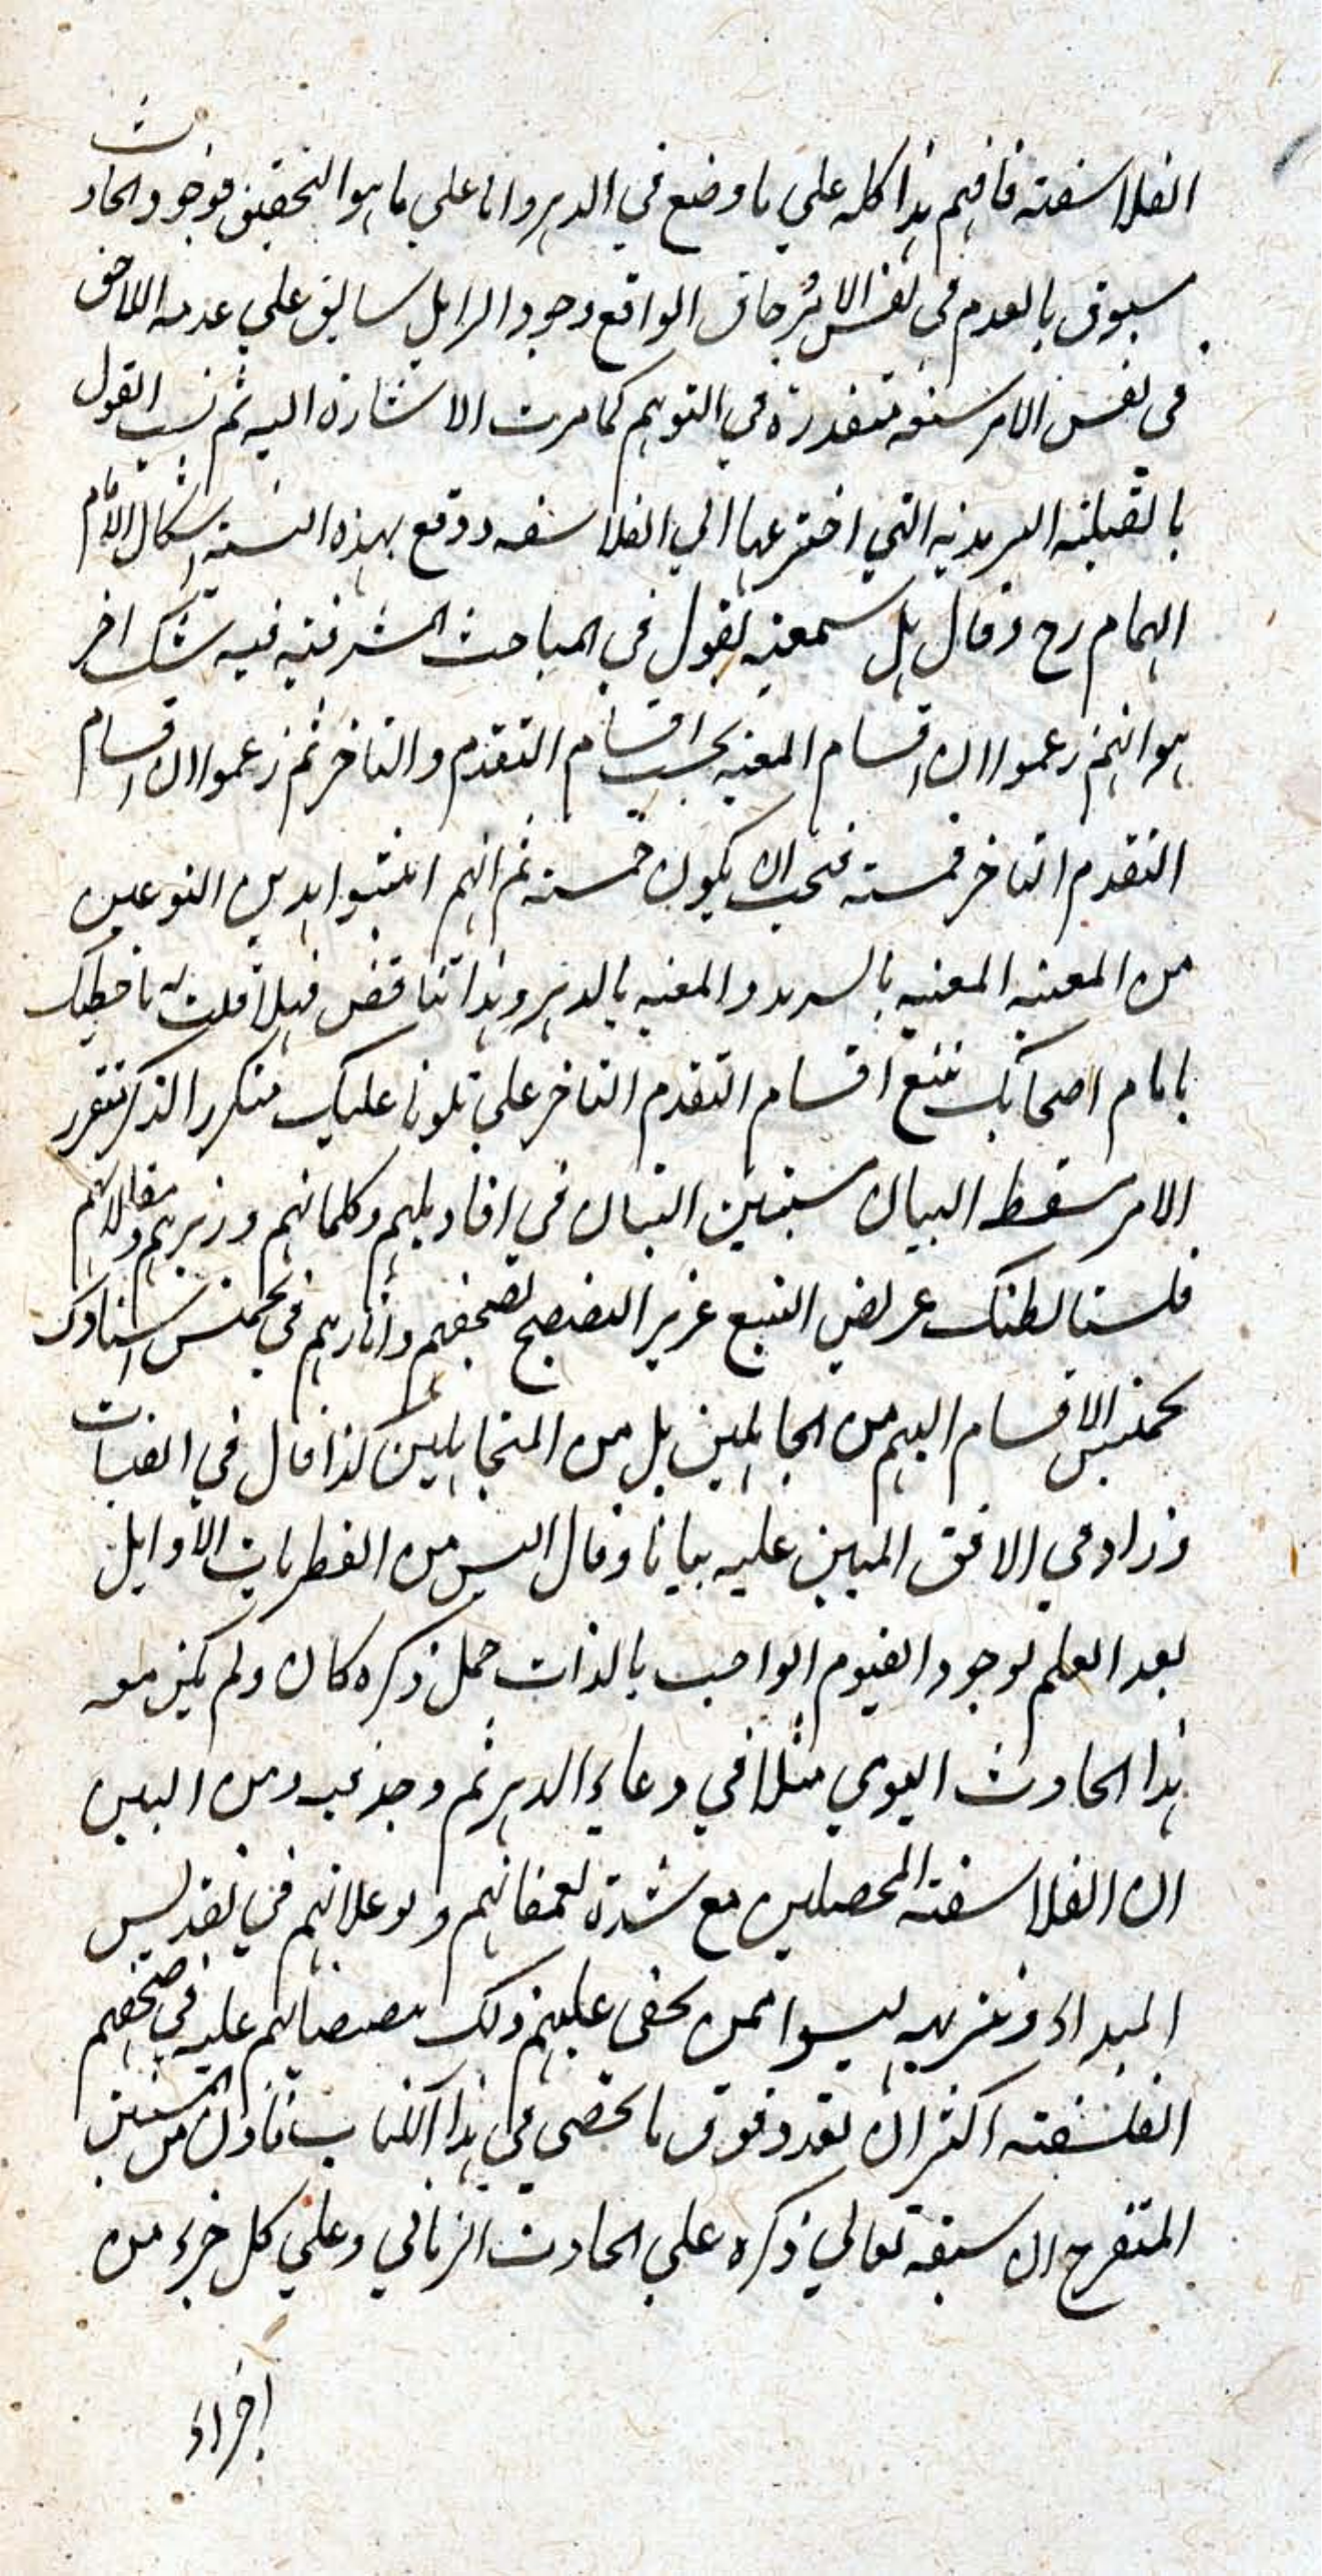 الفلاسفة فافهم هذا كله علي ما وضع في الدهر واما علي ما هو التحقيق فوجود الحادث
مسبوق بالعدم في نفس الامر حاق الواقع وجود الزايل سابق علي عدمه اللاحق
في نفس الامر متقدرة في التوهم كما مرت الاشارة اليه ثم نسب القول
بالقبلية السرمدية التي اخترعها الي الفلاسفه ووقع بهذه النسبة اشكال الامام
الهمام رح وقال هل سمعته يقول في المباحث المشرقية فيه شك اخر
هو انهم زعموا ان اقسام المعية بحسب اقسام التقدم والتاخر ثم زعموا ان اقسام
التقدم التاخر خمسة فيجب ان يكون خمسة ثم انهم اثبتوا هذين النوعين
من المعية المعية بالسرمد والمعية بالدهر وهذا تناقض فهلا قلت له ما خطبك
يا امام اصحابك تتبع اقسام التقدم التاخر علي تلونا عليك متكرر الذكر متقرر
الامر سقط البيان التبيان في اقاويلهم وكلماتهم وزبرهم ومقالاتهم
فلسنا نظنك عريض التتبع غزير التصفح لصحفهم واثارهم في تخميس اسنادك
تخميس الاقسام اليهم من الجاهلين بل من المتجاهلين كذا قال في القبسات
وزاد في الافق المبين عليه بيانا وقال اليس من الفطريات الاوايل
بعد العلم بوجود القيوم الواجب بالذات جل ذكره كان ولم يكن معه
هذا الحادث اليومي مثلا في وعاء الدهر ثم وجد فيه ومن البين
ان الفلاسفة المحصلين مع شدة تعمقاتهم وتوغلاتهم في تقديس
المبداء وتنزيهه ليسوا ممن يخفي عليهم ذلك تنصيصاتهم عليه في صحفهم
الفلسفية اكثر ان تعد وفوق ما تحصي في هذا الكتاب فاذن من المستبين
المتصرح ان سبقه تعالي ذكره علي الحادث الزماني وعلي كل جزء من
اجزاء